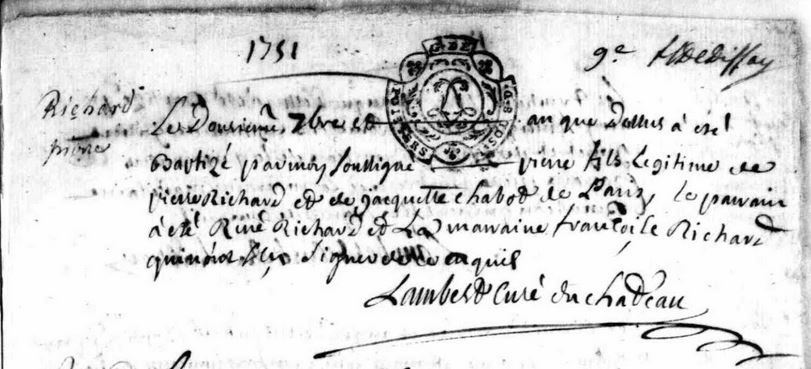 1751
9e
Richard
pierre
Le Douzieme 7bre et an que Dessus à eté
Baptizé par moy soussigné pierre fils Legitime de
pierre Richard et de jacquette chabot de Paris, le parain
à eté René Richard et La maraine françoise Richard
qui nont signer de ce enquis
Lambert Curé du chadeau